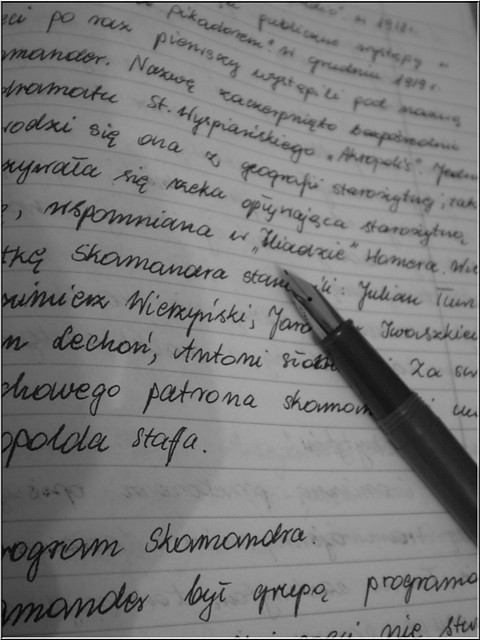 publiczne występy w
Pikadorem" w grudniu 1919 r.
po raz pierwszy wystąpili pod nazwą
amander. Nazwę zaczerpnięto bezpośrednio
dramatu St. Wyspiańskiego „Akropolis". Jedn
rodzi się ona z geografii starożytnej; tak
zywała się rzeka opływająca starożytną
, wspomniana w „Iliadzie" Homera. W
tkę Skamandra stan ili: Julian Tuw
zimierz Wierzyński, Jaro Iwaszkiew
n Lechoń, Antoni słon Za sw
chowego patrona skaman
opolda staffa.
rogram Skamandra.
amander był grupą programo
nie stw